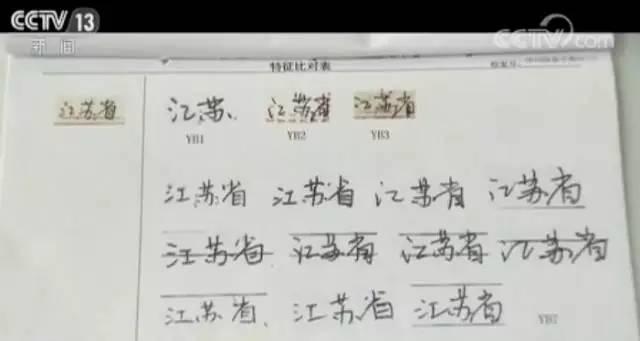 CCTV 13
新闻
CCTV.com
特征比对表
江苏省 江苏 江苏省 江苏省
YB1 YB2 YB3
江苏省 江苏省 江苏省 江苏省
江苏省 江苏省 江苏省 江苏省
江苏省 江苏省 江苏省 YB7